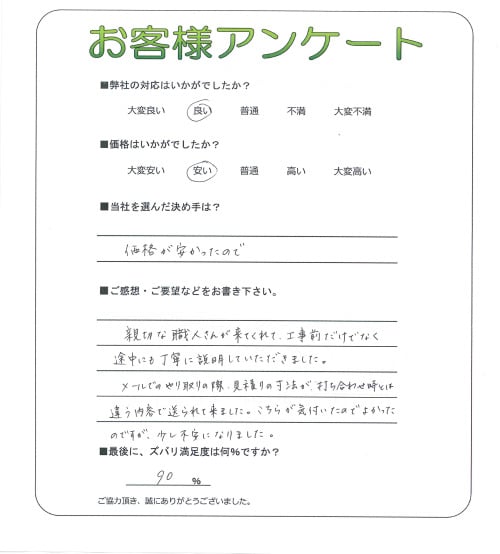 お客様アンケート
■弊社の対応はいかがでしたか？
大変良い 良い 普通 不満 大変不満
■価格はいかがでしたか？
大変安い 安い 普通 高い 大変高い
■当社を選んだ決め手は？
価格が安かったので
■ご感想・ご要望などをお書き下さい。
親切な職人さんが来てくれて、工事前だけでなく
途中にも丁寧に説明していただきました。
メールでのやり取りの際、見積りの寸法が、打ち合わせ時とは
違う内容で送られて来ました。こちらが気付いたのでよかった
のですが、少し不安になりました。
■最後に、ズバリ満足度は何％ですか？
90 ％
ご協力頂き、誠にありがとうございました。